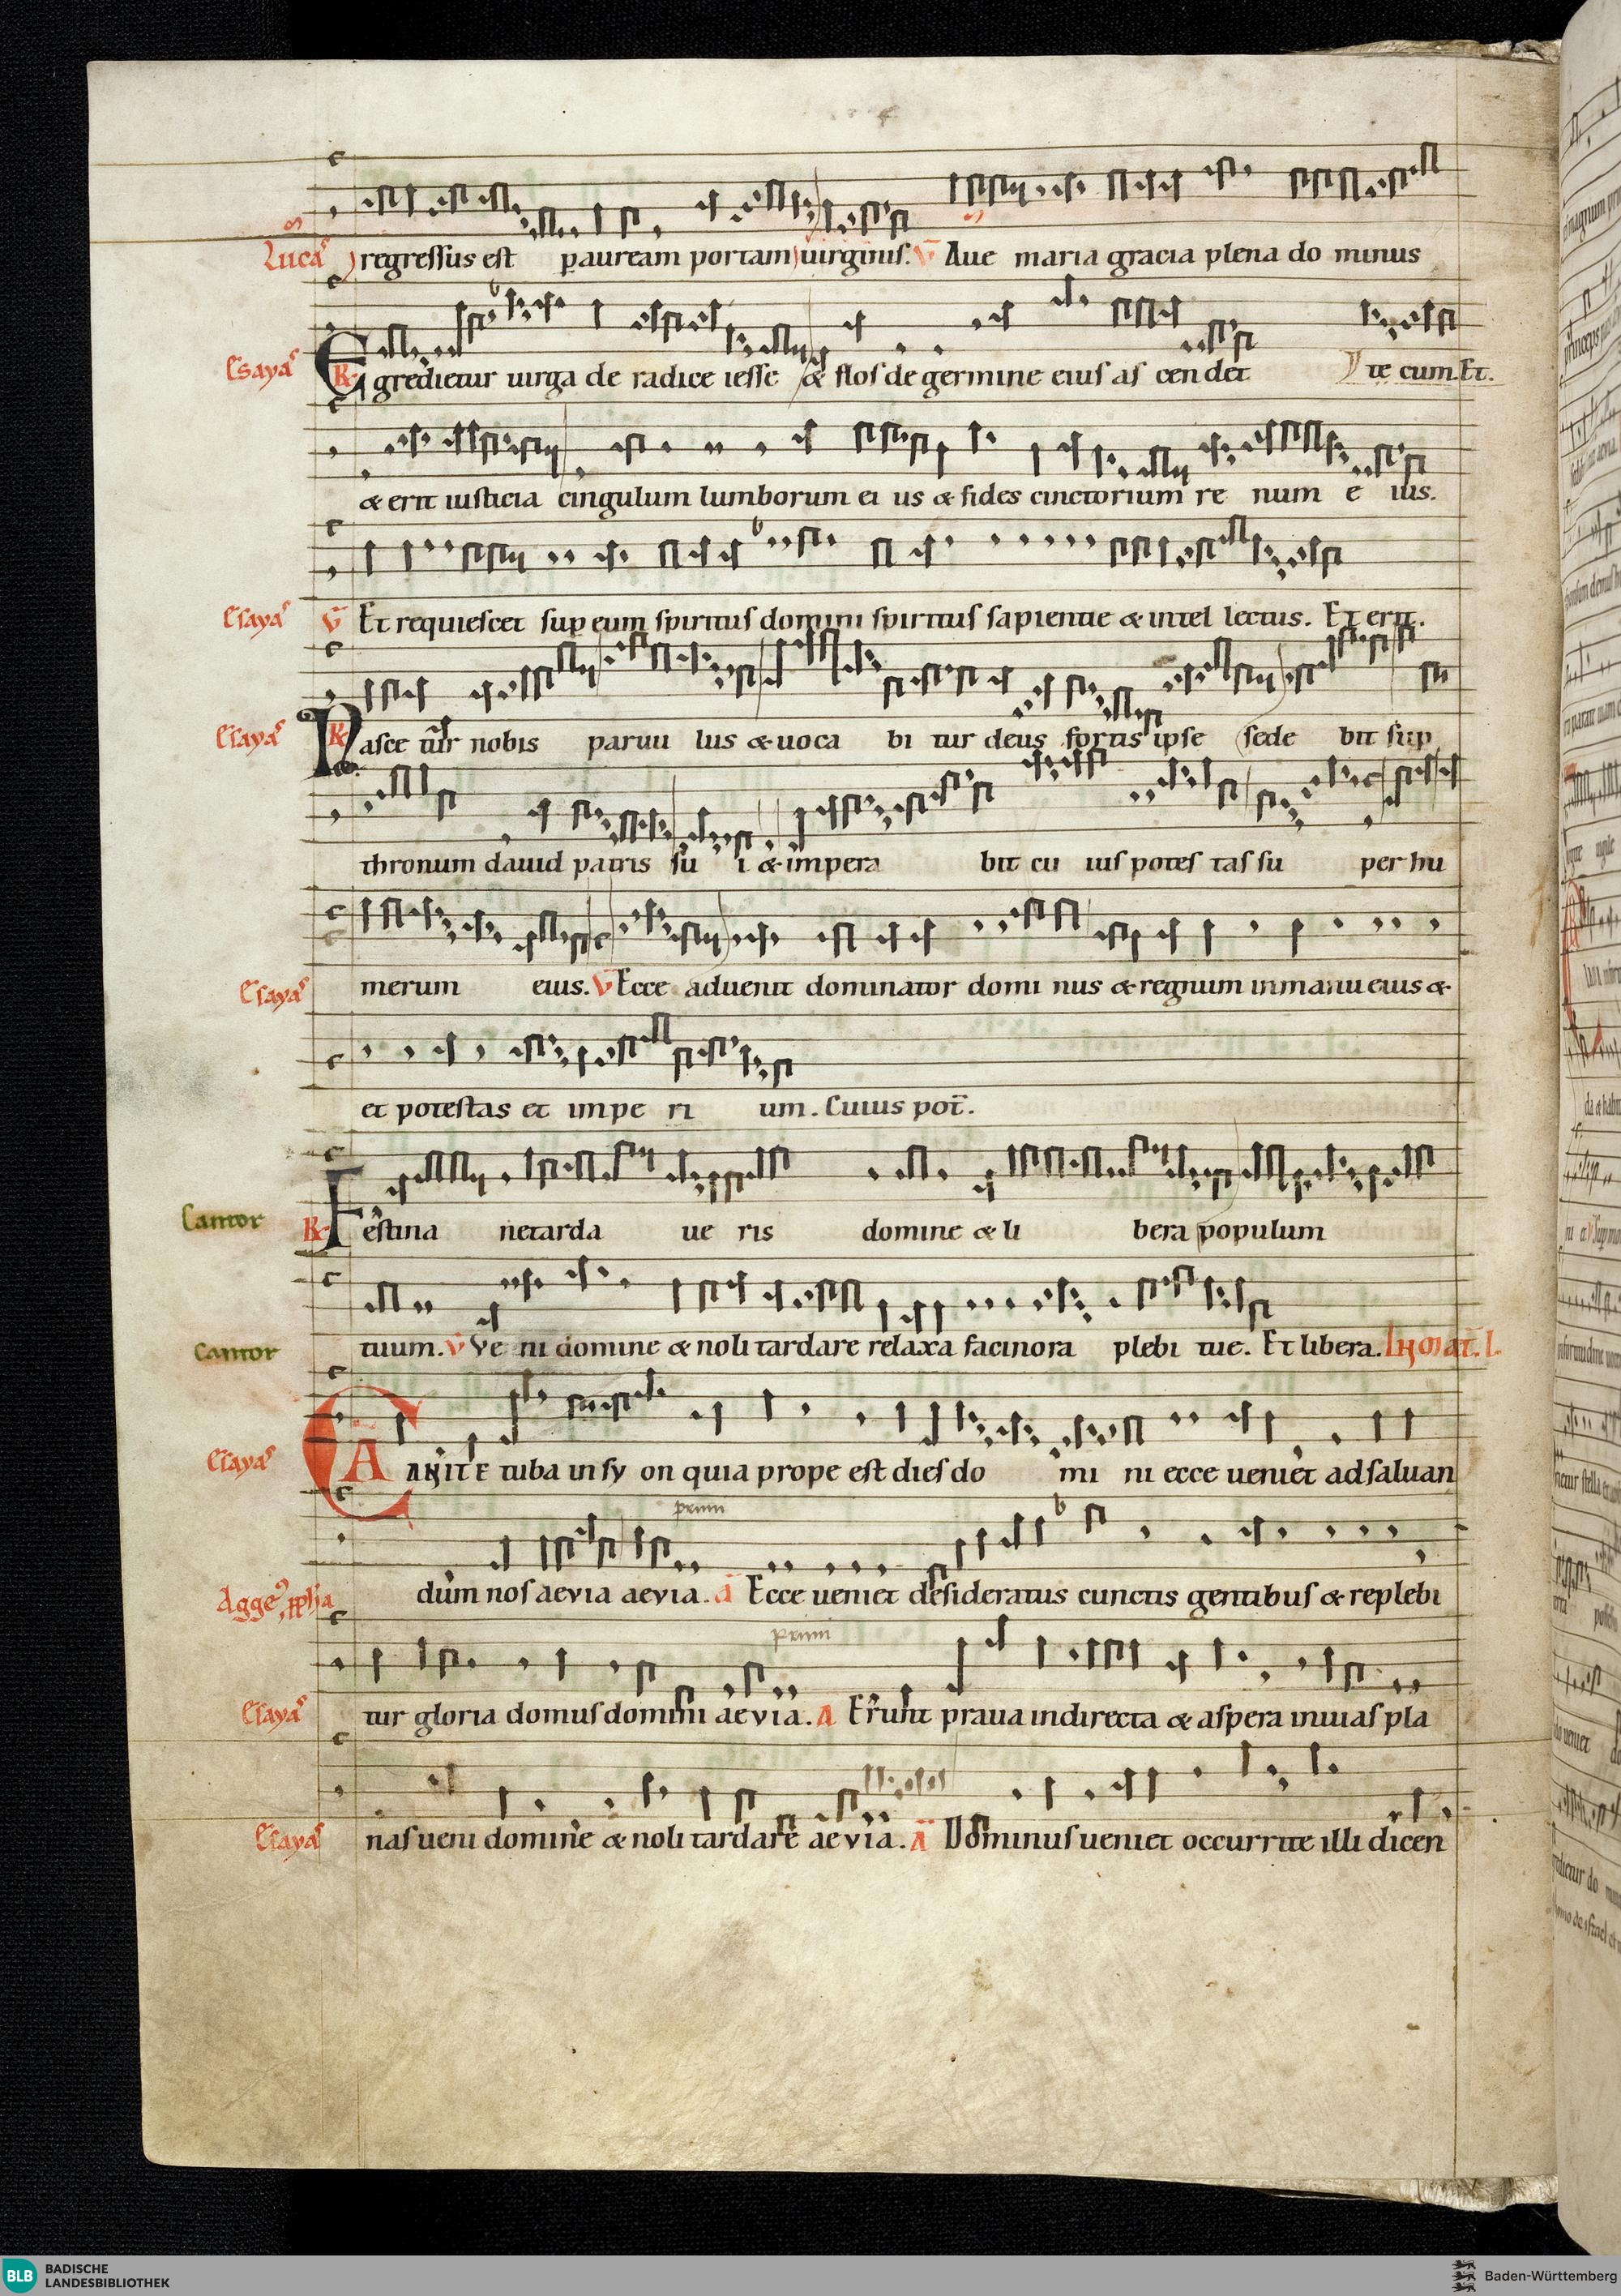 Lucas regressus est p auream portam uirginis. V Aue maria gracia plena do minus
Esayas R Egredietur uirga de radice iesse & flos de germine eius as cendet te cum Et.
& erit iusticia cingulum lumborum ei us & fides cinctorium re num e ius.
Esayas V Et requiescet sup eum spiritus domini spiritus sapientie & intel lectus. Et erit.
Esayas R Nasce tur nobis paruu lus & uoca bi tur deus fortis ipse sede bit sup
thronum dauid patris su i & impera bit cu ius potes tas su per hu
Esayas merum eius. V Ecce aduenit dominator domi nus & regnum in manu eius &
et potestas et impe ri um. Cuius pot̄.
Cantor R Festina ne tarda ue ris domine & li bera populum
Cantor tuum. V Ve ni domine & noli tardare relaxa facinora plebi tue. Et libera.
Esayas A CANITE tuba in sy on quia prope est dies do mi ni ecce ueniet ad saluan
prim
Agge, ppha dum nos aevia aevia. A Ecce ueniet desideratus cunctis gentibus & replebi
prim
Esayas tur gloria domus domini aevia. A Erunt praua in directa & aspera in uias pla
Esayas nas ueni domine & noli tardare aevia. A Dominus ueniet occurrite illi dicen
BLB BADISCHE
LANDESBIBLIOTHEK
Baden-Württemberg